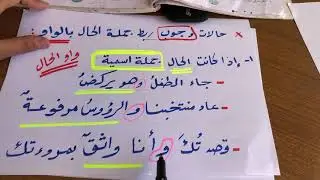 * حالات وجوب ربط جملة الحال بالواو :
واو الحال
١- إذا كانت الحال جملة اسمية
- جاء الطفلُ وهو يركضُ
- عاد منتخبنا والرؤوسُ مرفوعةٌ
- قصدتُكَ وأنا واثقٌ بمروءتك